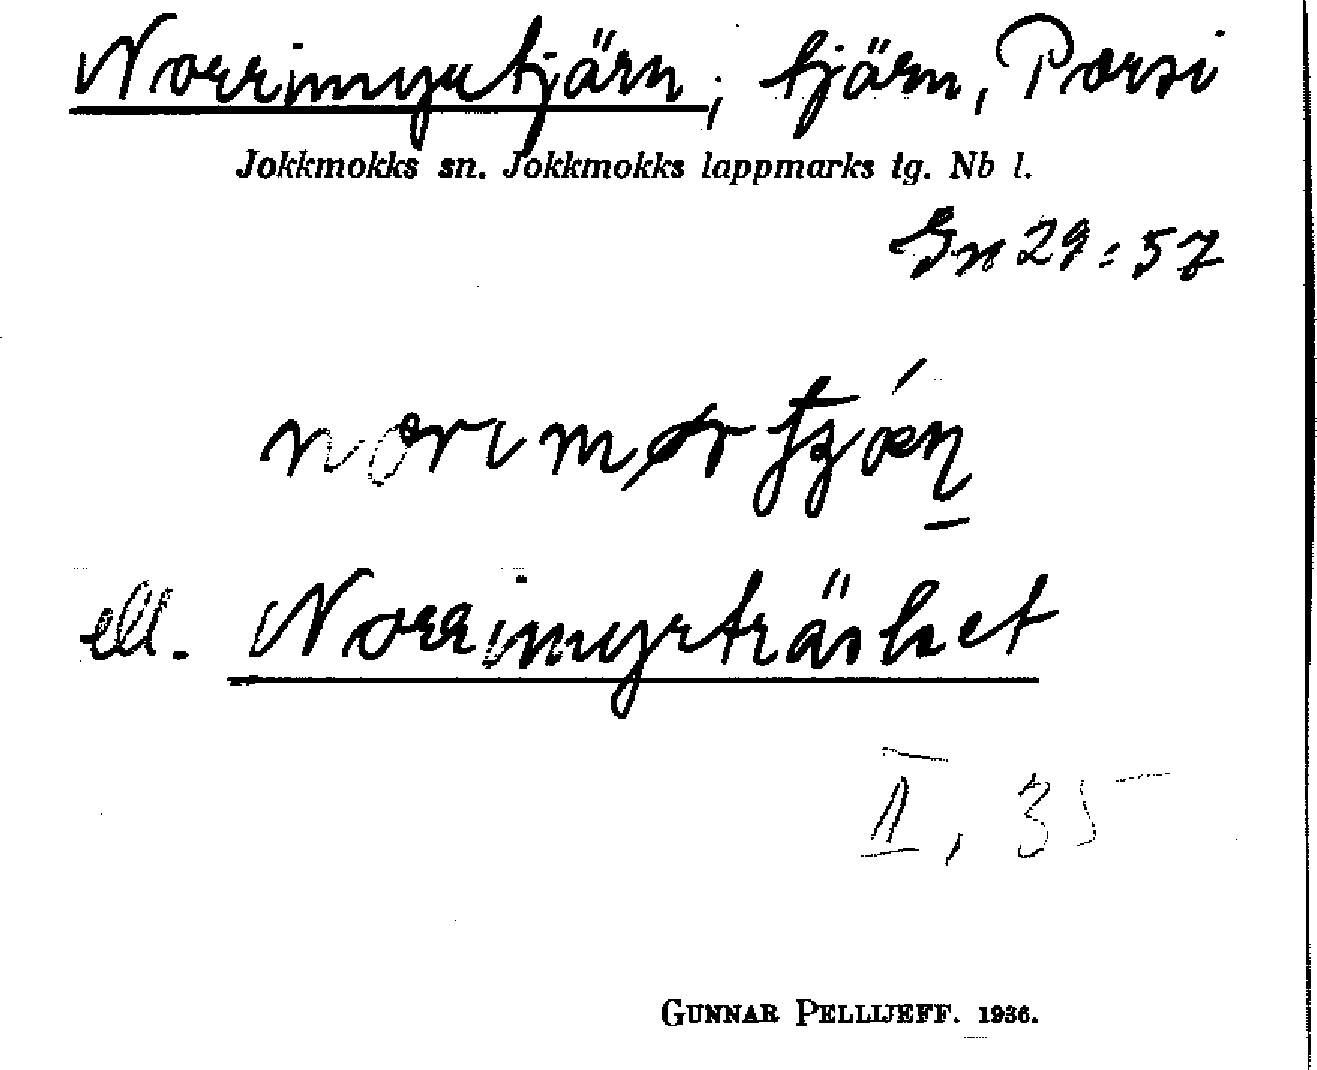 Norrimyrtjärn; tjärn, Porsi
Jokkmokks sn. Jokkmokks lappmarks tg. Nb l.
Gn 29:57
ell. Norrimyrträsket
II, 35
GUNNAR PELLIJEFF. 1936.